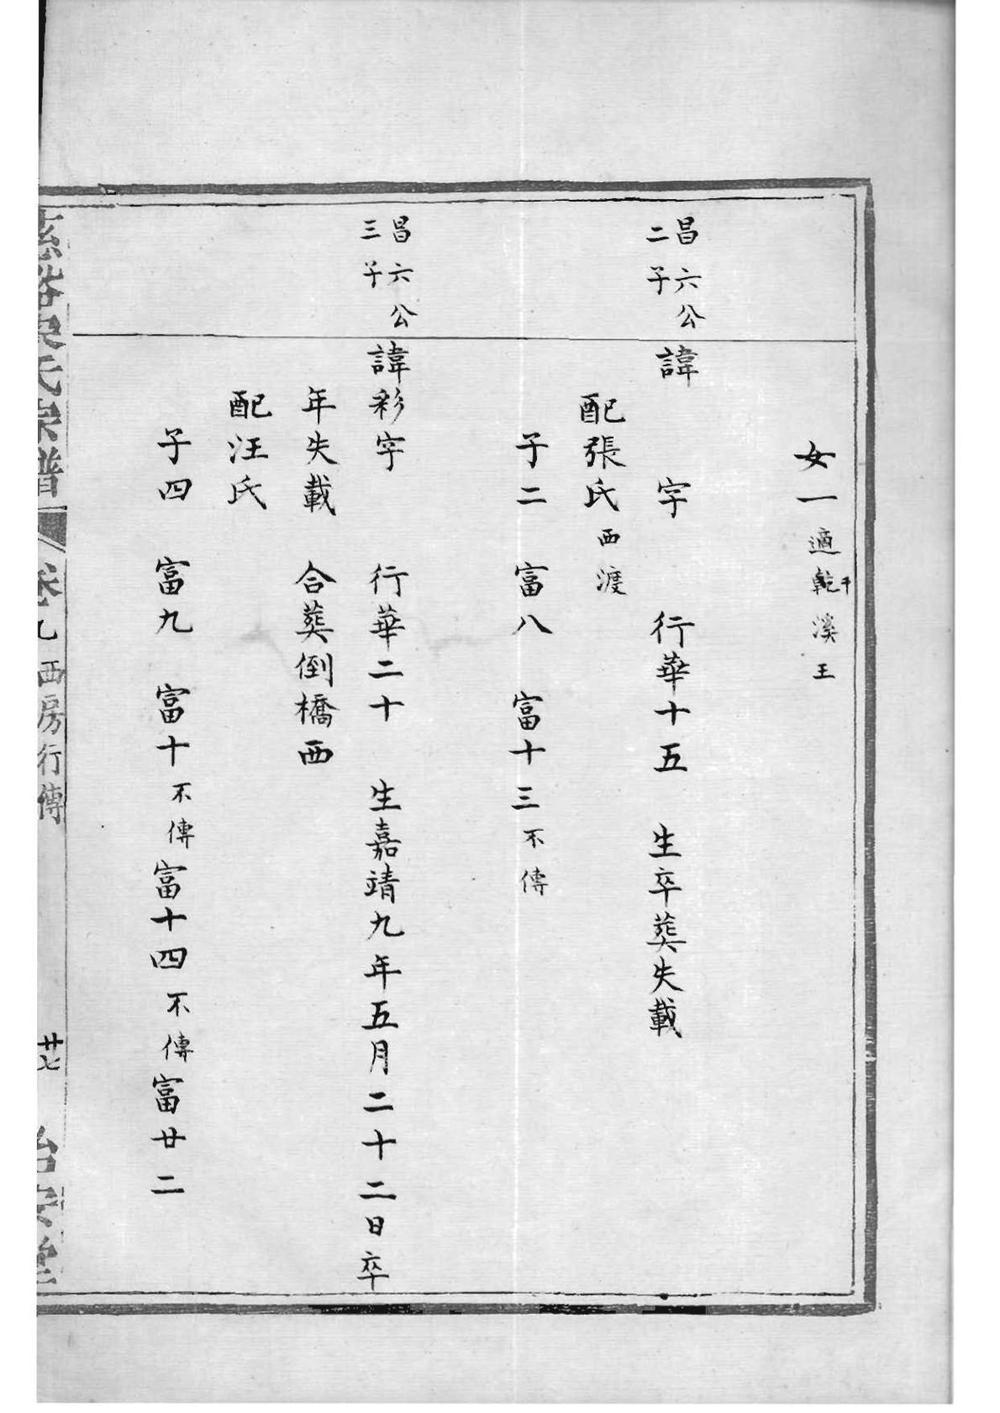 女一 適乾溪王
干
昌六公
二子
諱 字 行華十五 生卒葬失載
配張氏 西渡
子二 富八 富十三 不傳
昌六公
三子
諱彩字 行華二十 生嘉靖九年五月二十二日卒
年失載 合葬倒橋西
配汪氏
子四 富九 富十 不傳 富十四 不傳 富廿二
氏宗譜 卷九 西房行傳 廿七 治安堂